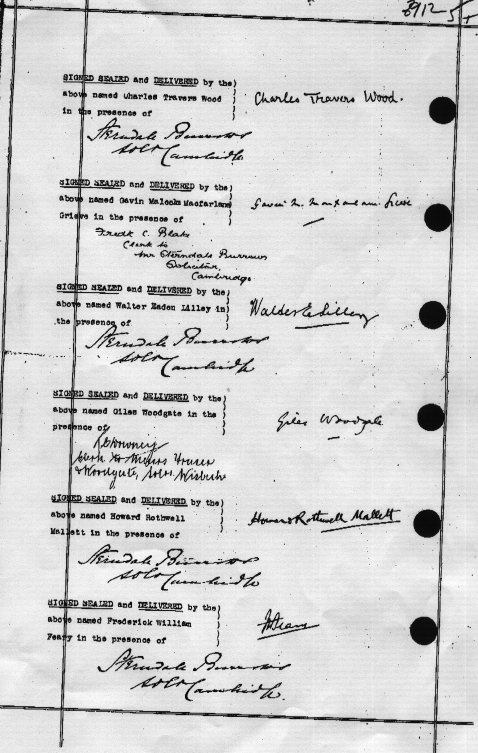 SIGNED SEALED and DELIVERED by the)
above named Charles Travers Wood
in the presence of
Charles Travers Wood.
Sterndale Burrows
Solr Cambridge
SIGNED SEALED and DELIVERED by the)
above named Gavin Malcolm Macfarlane
Grieve in the presence of
Gavin M. Macfarlane Grieve
Fredk C. Blake
Clerk to
Mr Sterndale Burrows
Solicitor,
Cambridge
SIGNED SEALED and DELIVERED by the)
above named Walter Eaden Lilley in)
the presence of
Walter E Lilley
Sterndale Burrows
Solr Cambridge
SIGNED SEALED and DELIVERED by the)
above named Giles Woodgate in the
presence of
Giles Woodgate
Clerk to Messrs
& Woodgate, Solrs, Wisbech
SIGNED SEALED and DELIVERED by the)
above named Howard Rothwell
Mallett in the presence of
Howard Rothwell Mallett
Sterndale Burrows
Solr Cambridge
SIGNED SEALED and DELIVERED by the)
above named Frederick William
Feary in the presence of
Sterndale Burrows
Solr Cambridge.